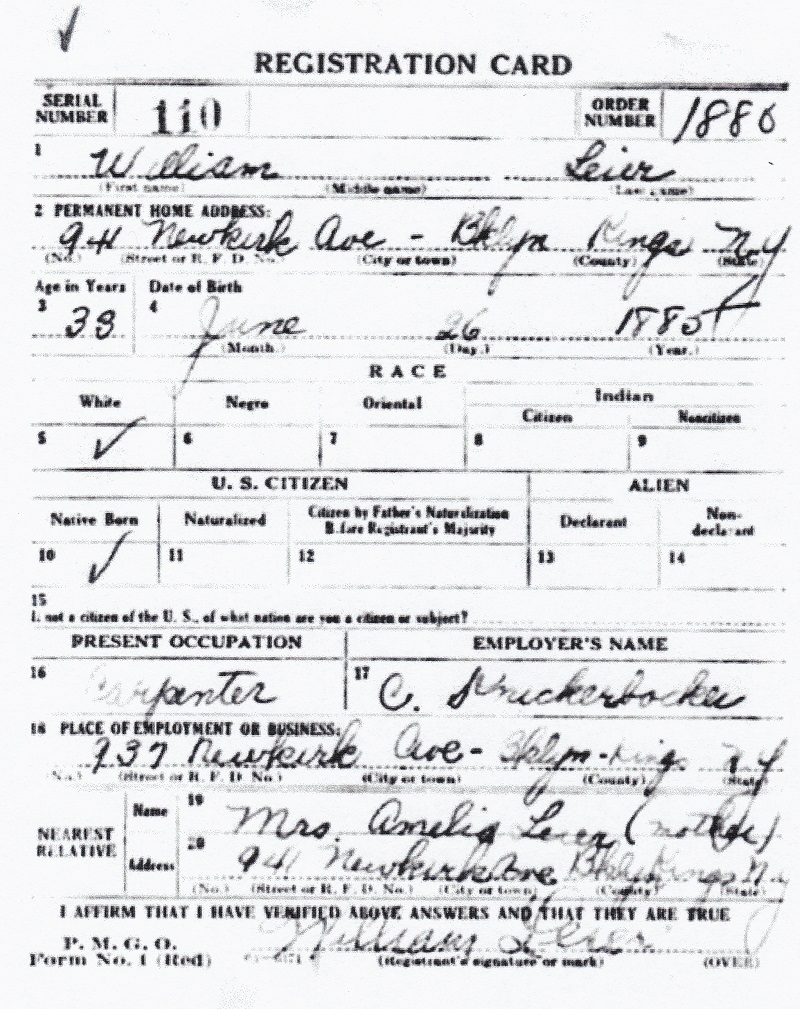 REGISTRATION CARD
SERIAL NUMBER 110 ORDER NUMBER 1880
1 William Leier
(First name) (Middle name) (Last name)
2 PERMANENT HOME ADDRESS:
941 Newkirk Ave - Bklyn Kings N.Y
(No.) (Street or R. F. D. No.) (City or town) (County) (State)
Age in Years Date of Birth
3 33 4 June 26 1885
(Month.) (Day.) (Year.)
RACE
White Negro Oriental Indian
Citizen Noncitizen
5 ✓ 6 7 8 9
U. S. CITIZEN ALIEN
Native Born Naturalized Citizen by Father's Naturalization Before Registrant's Majority Declarant Non-declarant
10 ✓ 11 12 13 14
15
If not a citizen of the U. S., of what nation are you a citizen or subject?
PRESENT OCCUPATION EMPLOYER'S NAME
16 Carpenter 17 C. Knickerbocker
18 PLACE OF EMPLOYMENT OR BUSINESS:
937 Newkirk Ave - Bklyn - Kings N Y
(No.) (Street or R. F. D. No.) (City or town) (County) (State)
NEAREST RELATIVE
Name 19 Mrs. Amelia Leier (mother)
Address 20 941 Newkirk Ave Bklyn Kings N.Y
(No.) (Street or R. F. D. No.) (City or town) (County) (State)
I AFFIRM THAT I HAVE VERIFIED ABOVE ANSWERS AND THAT THEY ARE TRUE
P. M. G. O.
Form No. 1 (Red) William Leier
(Registrant's signature or mark) (OVER)